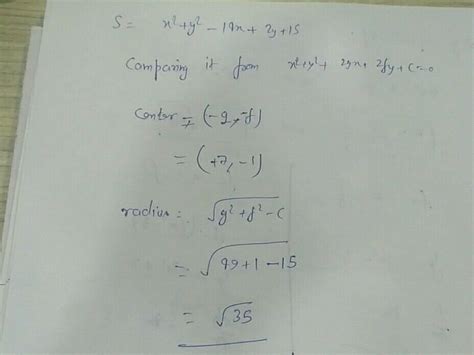 S = x² + y² - 14x + 2y + 15
Comparing it from x² + y² + 2gx + 2fy + c = 0
Center = (-g, -f)
= (+7, -1)
radius = √g² + f² - c
= √49 + 1 - 15
= √35